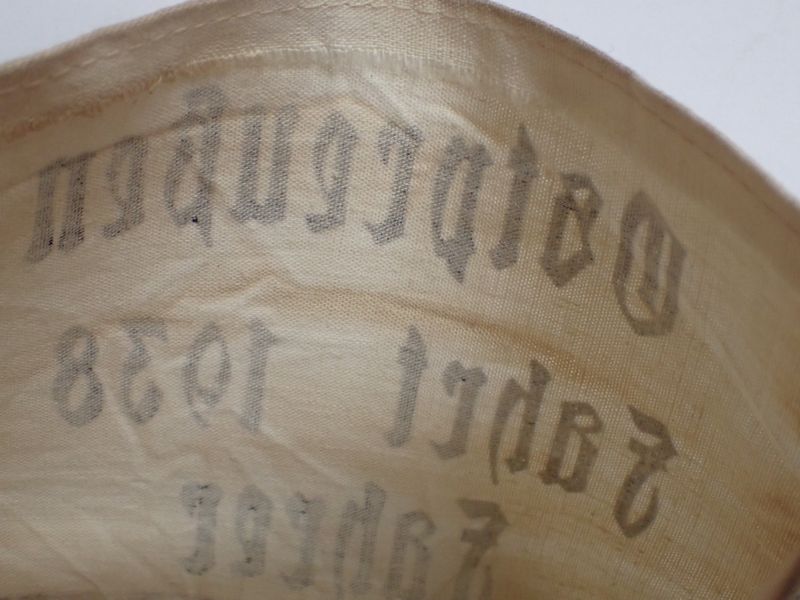 Ostpreußen
Fahrt 1938
Fahrer